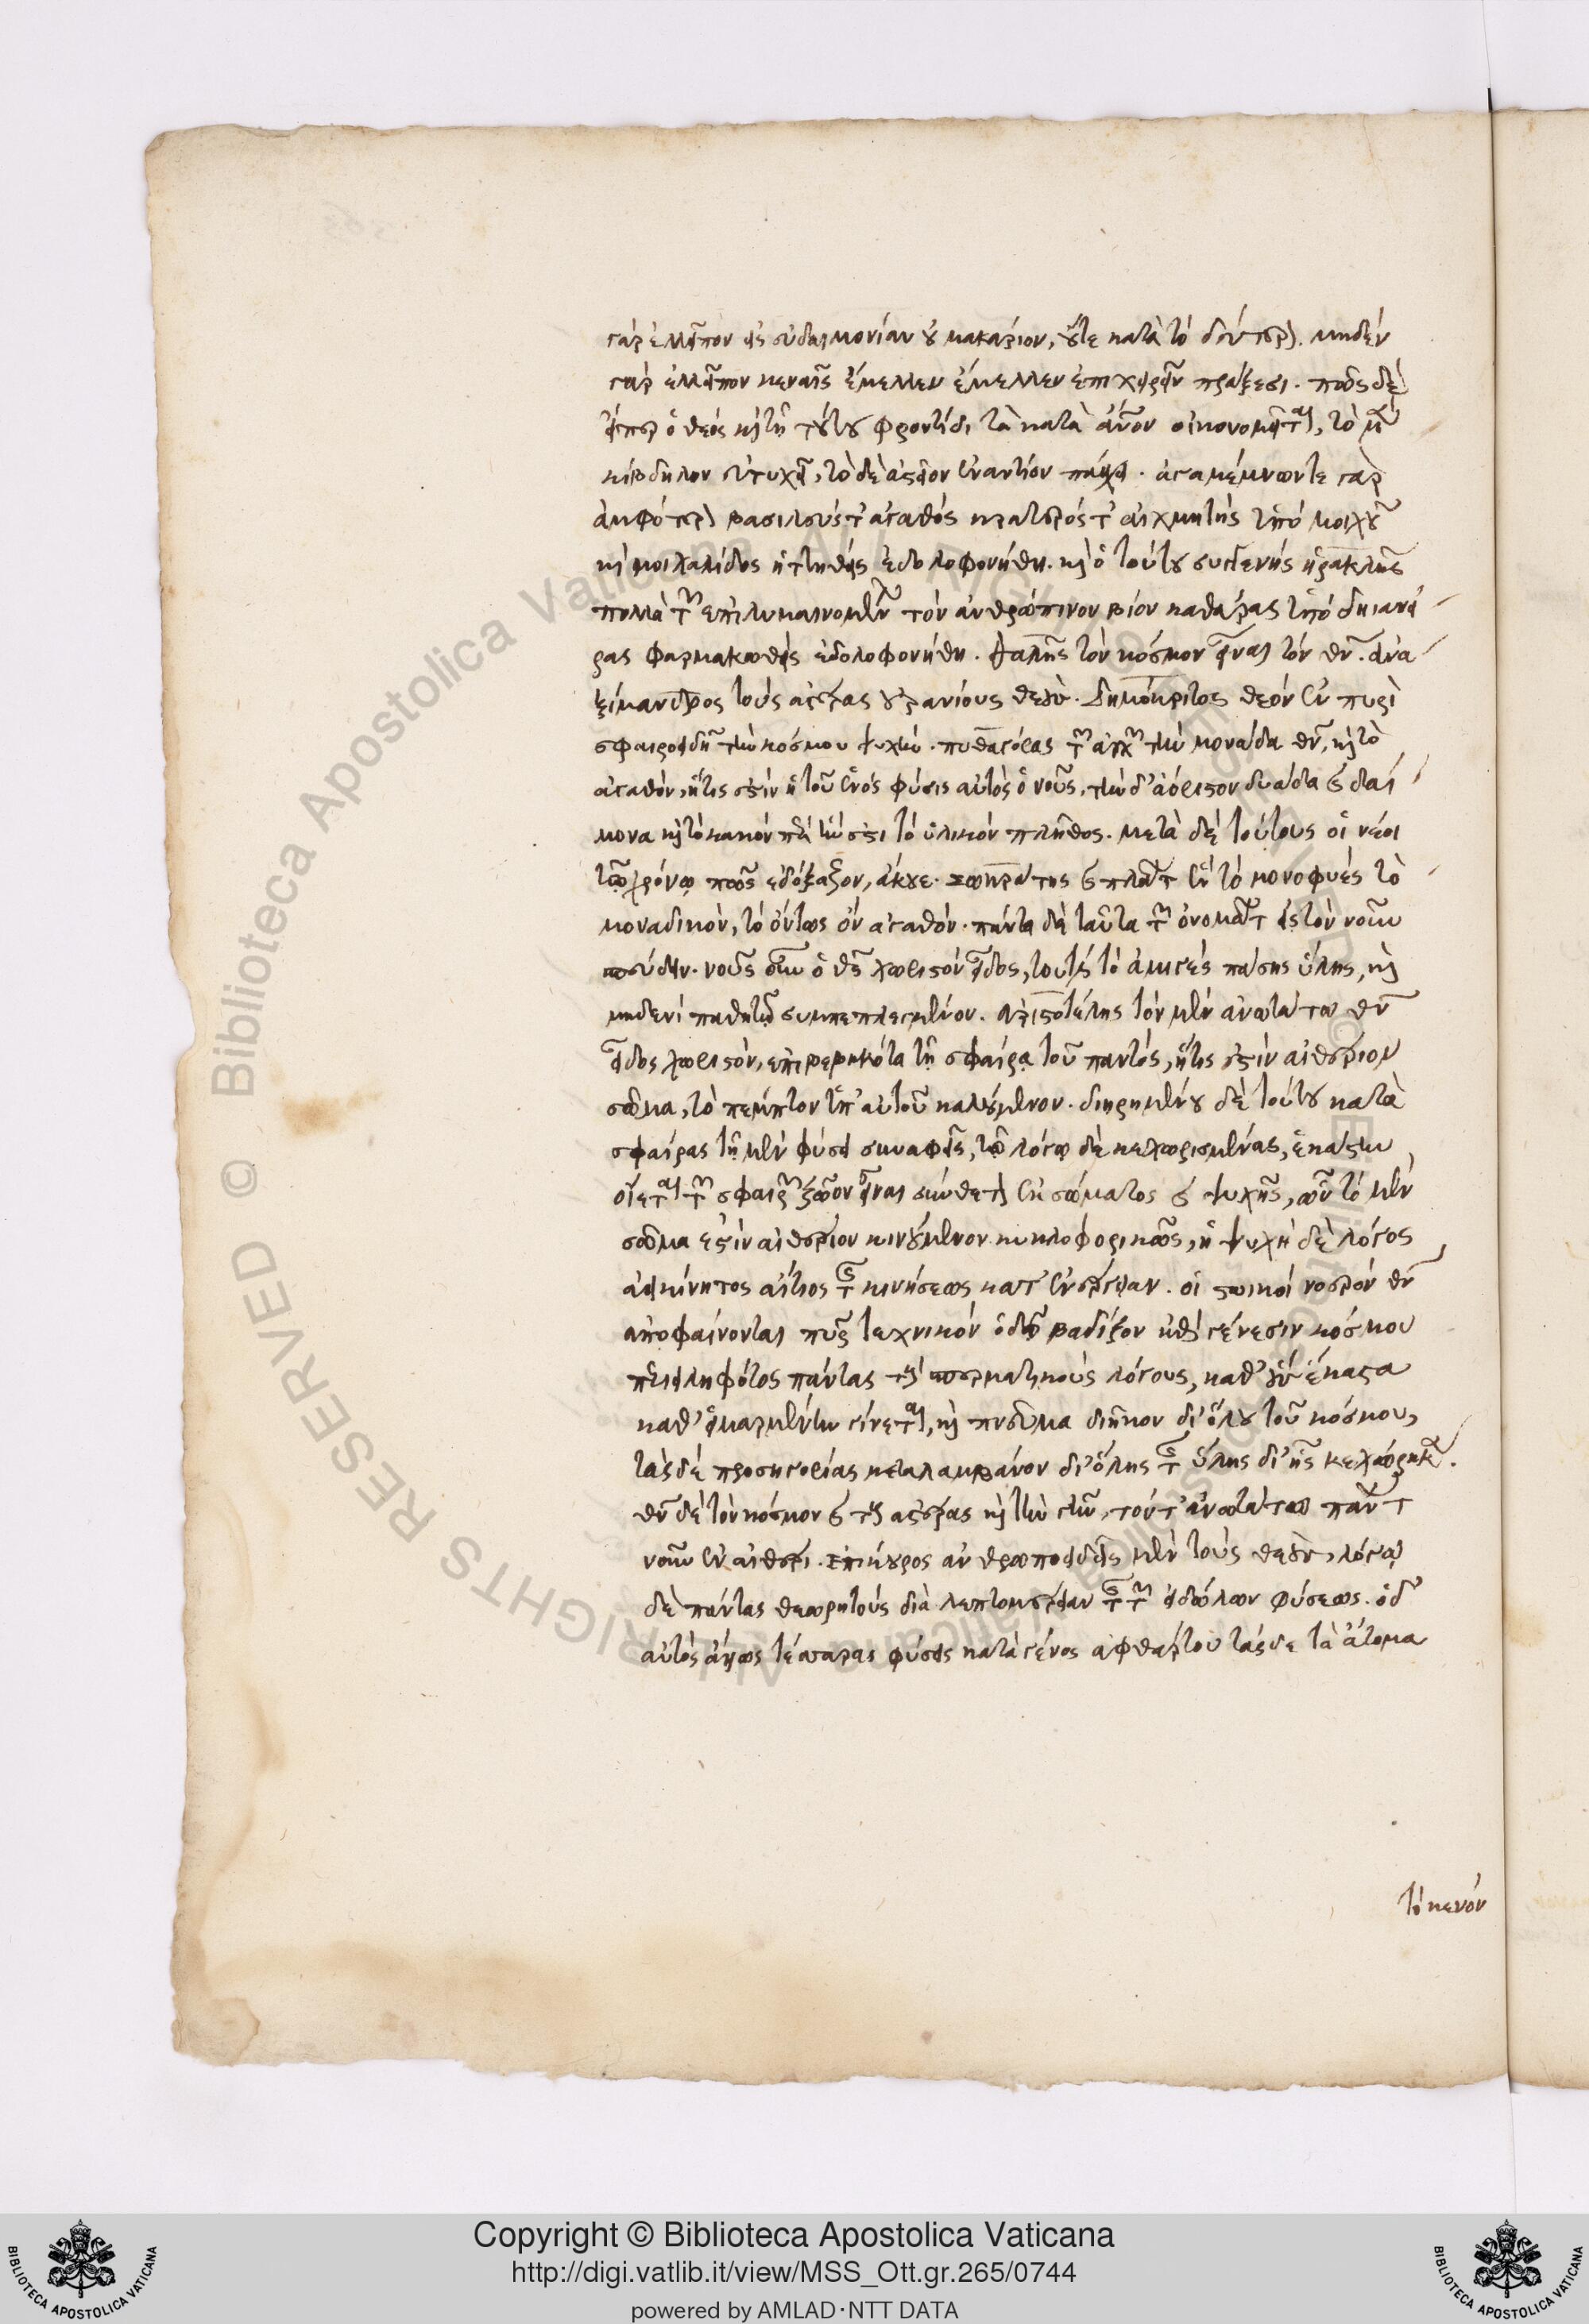 γὰρ ἐλλεῖπον εἰς εὐδαιμονίαν οὐ μακάριον, οὔτε κατὰ τὸ δεύτερον. μηδὲν
γὰρ ἐλλεῖπον κεναῖς ἔμελλεν ἔμελλεν ἐπιχειρεῖν πράξεσι. πῶς δὲ
εἴπερ ὁ θεός καὶ τῇ τούτου φροντίδι τὰ κατὰ ἄνον οἰκονομεῖται, τὸ μὲν
κίβδηλον εὐτυχεῖ, τὸ δὲ ἀστεῖον ἐναντίον πάσχει. ἀγαμέμνων τε γὰρ
ἀμφότερον βασιλεύς τ' ἀγαθός κρατερός τ' αἰχμητὴς ὑπὸ μοιχοῦ
καὶ μοιχαλίδος ἡττηθεὶς ἐδολοφονήθη. καὶ ὁ τούτου συγγενής ἡρακλῆς
πολλὰ τῶν ἐπιλυμαινομένων τὸν ἀνθρώπινον βίον καθάρας ὑπὸ δηιανεί
ρας φαρμακωθεὶς ἐδολοφονήθη. θαλῆς τὸν κόσμον εἶναι τὸν θν. ἀνα
ξίμανδρος τοὺς ἀστέρας οὐρανίους θεούς. Δημόκριτος θεὸν ἐν πυρὶ
σφαιροειδῆ τὴν κόσμου ψυχὴν. πυθαγόρας τῶν ἀρχῶν τὴν μονάδα θν, καὶ τὸ
ἀγαθόν, ἥτις ἐστὶν ἡ τοῦ ἑνός φύσις αὐτὸς ὁ νοῦς. τὴν δ' ἀόριστον δυάδα καὶ δαί
μονα καὶ τὸ κακόν περὶ ἥν ἐστι τὸ ὑλικόν πλῆθος. μετὰ δὲ τούτους οἱ νέοι
τῷ χρόνῳ πῶς ἐδόξαζον, ἄκουε. Σωκράτης καὶ πλάτων ἓν τὸ μονοφυές τὸ
μοναδικὸν, τὸ ὄντως ὄν ἀγαθόν. πάντα δὲ ταῦτα τῶν ὀνομάτων εἰς τὸν νοῦν
σπεύδειν. νοῦς οὖν ὁ θς χωριστόν εἶδος, τουτέστι τὸ ἀμιγές πάσης ὕλης, καὶ
μηδενὶ παθητῷ συμπεπλεγμένον. Ἀριστοτέλης τὸν μὲν ἀνωτάτω θν
εἶδος χωριστόν, ἐπιβεβηκότα τῇ σφαίρᾳ τοῦ παντός, ἥτις ἐστὶν αἰθέριον
σῶμα, τὸ πέμπτον ὑπ' αὐτοῦ καλούμενον. διῃρημένου δὲ τούτου κατὰ
σφαίρας τῇ μὲν φύσει συναφεῖς, τῷ λόγῳ δὲ κεχωρισμένας, ἑκάστην
οἴεται τῶν σφαιρῶν ζῶον εἶναι σύνθετον ἐκ σώματος καὶ ψυχῆς, ὧν τὸ μὲν
σῶμα ἐστὶν αἰθέριον κινούμενον κυκλοφορικῶς, ἡ ψυχὴ δὲ λόγος
ἀεικίνητος αἴτιος τῆς κινήσεως κατ' ἐνέργειαν. οἱ στωικοὶ νοερόν θν
ἀποφαίνονται πῦρ τεχνικόν ὁδῷ βαδίζον ἐπὶ γένεσιν κόσμου
περιειληφότος πάντας τοὺς σπερματικοὺς λόγους, καθ' οὓς ἕκαστα
καθ' εἱμαρμένην γίνεται, καὶ πνεῦμα διῆκον δι' ὅλου τοῦ κόσμου,
τὰς δὲ προσηγορίας μεταλαμβάνον δι' ὅλης τῆς ὕλης δι' ἧς κεχώρηκε.
θν δὲ τὸν κόσμον καὶ τοὺς ἀστέρας καὶ τὴν γῆν, τὸν τ' ἀνωτάτω πάντων
νοῦν ἐν αἰθέρι. Ἐπίκουρος ἀνθρωποειδεῖς μὲν τοὺς θεούς, λόγῳ
δὲ πάντας θεωρητοὺς διὰ λεπτομέρειαν τῆς τῶν εἰδώλων φύσεως. ὁ δ'
αὐτὸς ἄλλως τέσσαρας φύσεις κατὰ γένος ἀφθάρτου τάσδε τὰ ἄτομα
τὸ κενόν
Copyright © Biblioteca Apostolica Vaticana
http://digi.vatlib.it/view/MSS_Ott.gr.265/0744
powered by AMLAD·NTT DATA